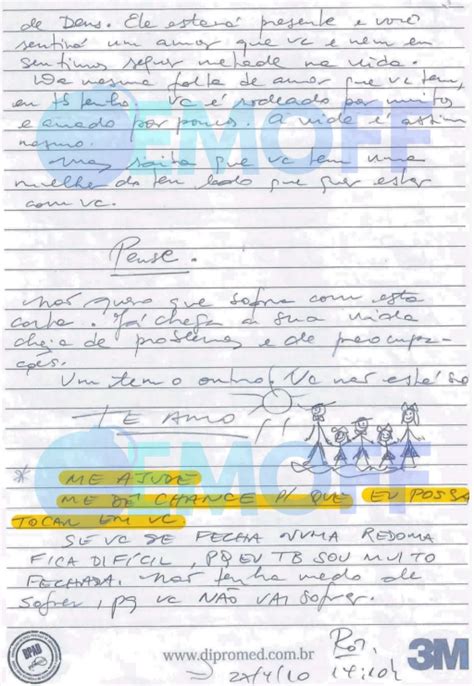 de Deus. Ele estará presente e você
sentirá um amor que vc e nem eu
sentimos sequer metade na vida.
Da mesma falta de amor que vc tem,
eu tb tenho. vc é rodeado por muitos
e amado por poucos. A vida é assim
mesmo.
Mas saiba que vc tem uma
mulher do teu lado que quer estar
com vc.
Pense.
Não quero que sofra com esta
carta. Já chega a sua vida
cheia de problemas e de preocupa-
ções.
Um tem o outro! Vc não está só
TE AMO!!
* ME AJUDE
ME DÊ CHANCE P/ QUE EU POSSA
TOCAR EM VC
SE VC SE FECHA NUMA REDOMA
FICA DIFÍCIL, PQ EU TB SOU MUITO
FECHADA. Não tenha medo de
sofrer, pq vc NÃO VAI sofrer.
DEMOFF
DEMOFF
DPAD
www.dipromed.com.br
3M
14:10h